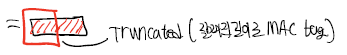 = Truncated (잘려진 길이로 MAC tag)